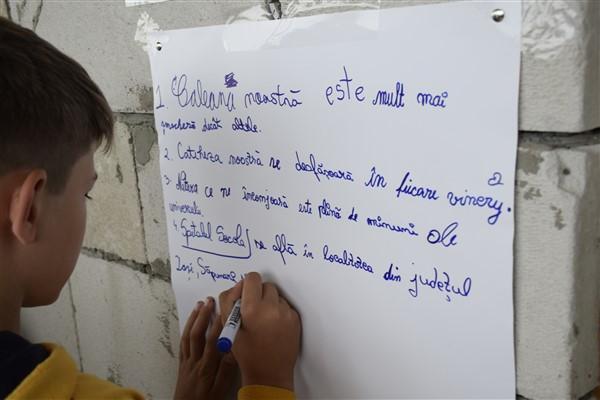 1. Caleaña noastră este mult mai
șmecheră decât altele.
2. Cateheza noastră se desfășoară în fiicare vinery.
3. Natura ce ne înconjoară este plină de minuni ale
universului.
4. Spitalul Socola se află în localitatea din județul
Iași,